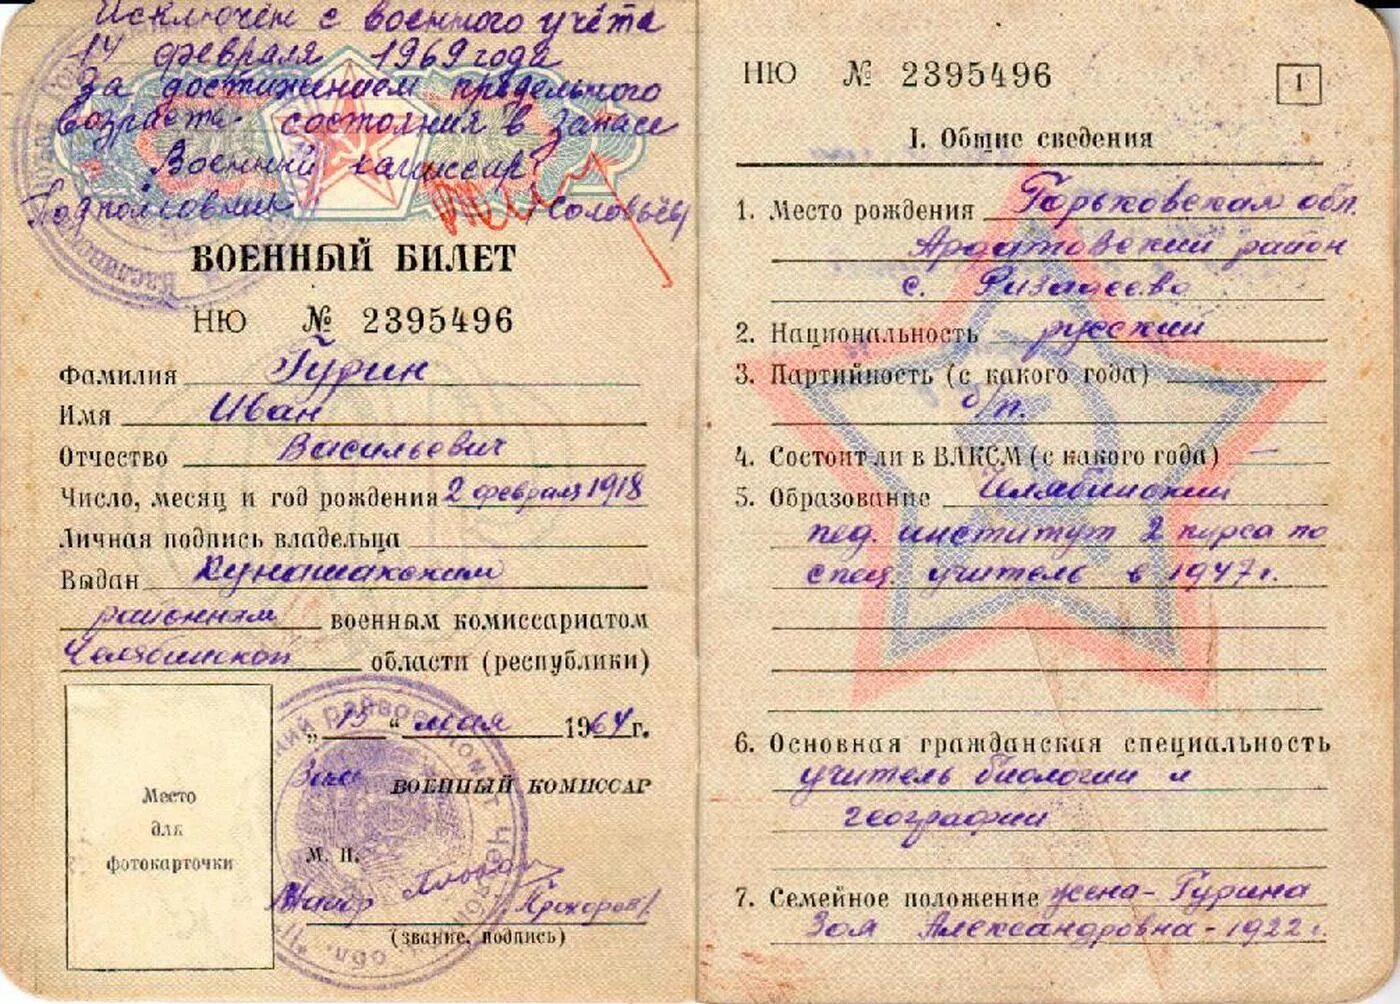 Исключен с военного учёта
14 февраля 1969 года
за достижением предельного
возраста состояния в запасе
Военный комиссар
Подполковник Соловьёв
ВОЕННЫЙ БИЛЕТ
НЮ № 2395496
Фамилия Гурин
Имя Иван
Отчество Васильевич
Число, месяц и год рождения 2 февраля 1918
Личная подпись владельца
Выдан Кунашакским
районным военным комиссариатом
Челябинской области (республики)
„ 13 “ мая 1964 г.
ВОЕННЫЙ КОМИССАР
М. П.
Майор Прохоров
(звание, подпись)
Место
для
фотокарточки
НЮ № 2395496
1
I. Общие сведения
1. Место рождения Горьковская обл.
Ардатовский район
с.
2. Национальность русский
3. Партийность (с какого года)
б/п.
4. Состоит ли в ВЛКСМ (с какого года) —
5. Образование Челябинский
пед. институт 2 курса по
спец. учитель в 1947 г.
6. Основная гражданская специальность
учитель биологии и
географии
7. Семейное положение жена - Гурина
Зоя Александровна - 1922 г.